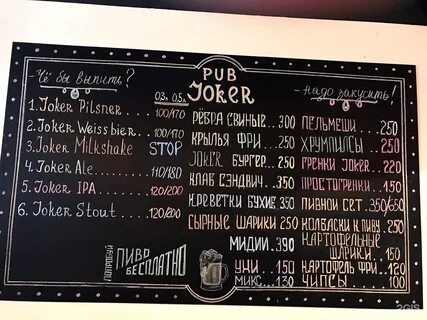 PUB
Joker
- Чё бы выпить?
0.3л 0.5л
1. Joker Pilsner 100/170
2. Joker Weissbier 100/170
3. Joker Milkshake STOP
4. Joker Ale 110/180
5. Joker IPA 120/200
6. Joker Stout 120/200
ПОПРОБУЙ
ПИВО
БЕСПЛАТНО
РЁБРА СВИНЫЕ 300
КРЫЛЬЯ ФРИ 250
JOKER БУРГЕР 250
КЛАБ СЭНДВИЧ 350
КРЕВЕТКИ БУХИЕ 350
СЫРНЫЕ ШАРИКИ 250
МИДИИ 390
УНИ 150
МИКС 130
- Надо закусить!
ПЕЛЬМЕШИ 250
ХРУМПИЛСЫ 250
ГРЕНКИ JOKER 220
ПРОСТОГРЕНКИ 150
ПИВНОЙ СЕТ 350/650
КОЛБАСКИ К ПИВУ 250
КАРТОФЕЛЬНЫЕ
ШАРИКИ 150
КАРТОФЕЛЬ ФРИ 120
ЧИПСЫ 100
2GIS